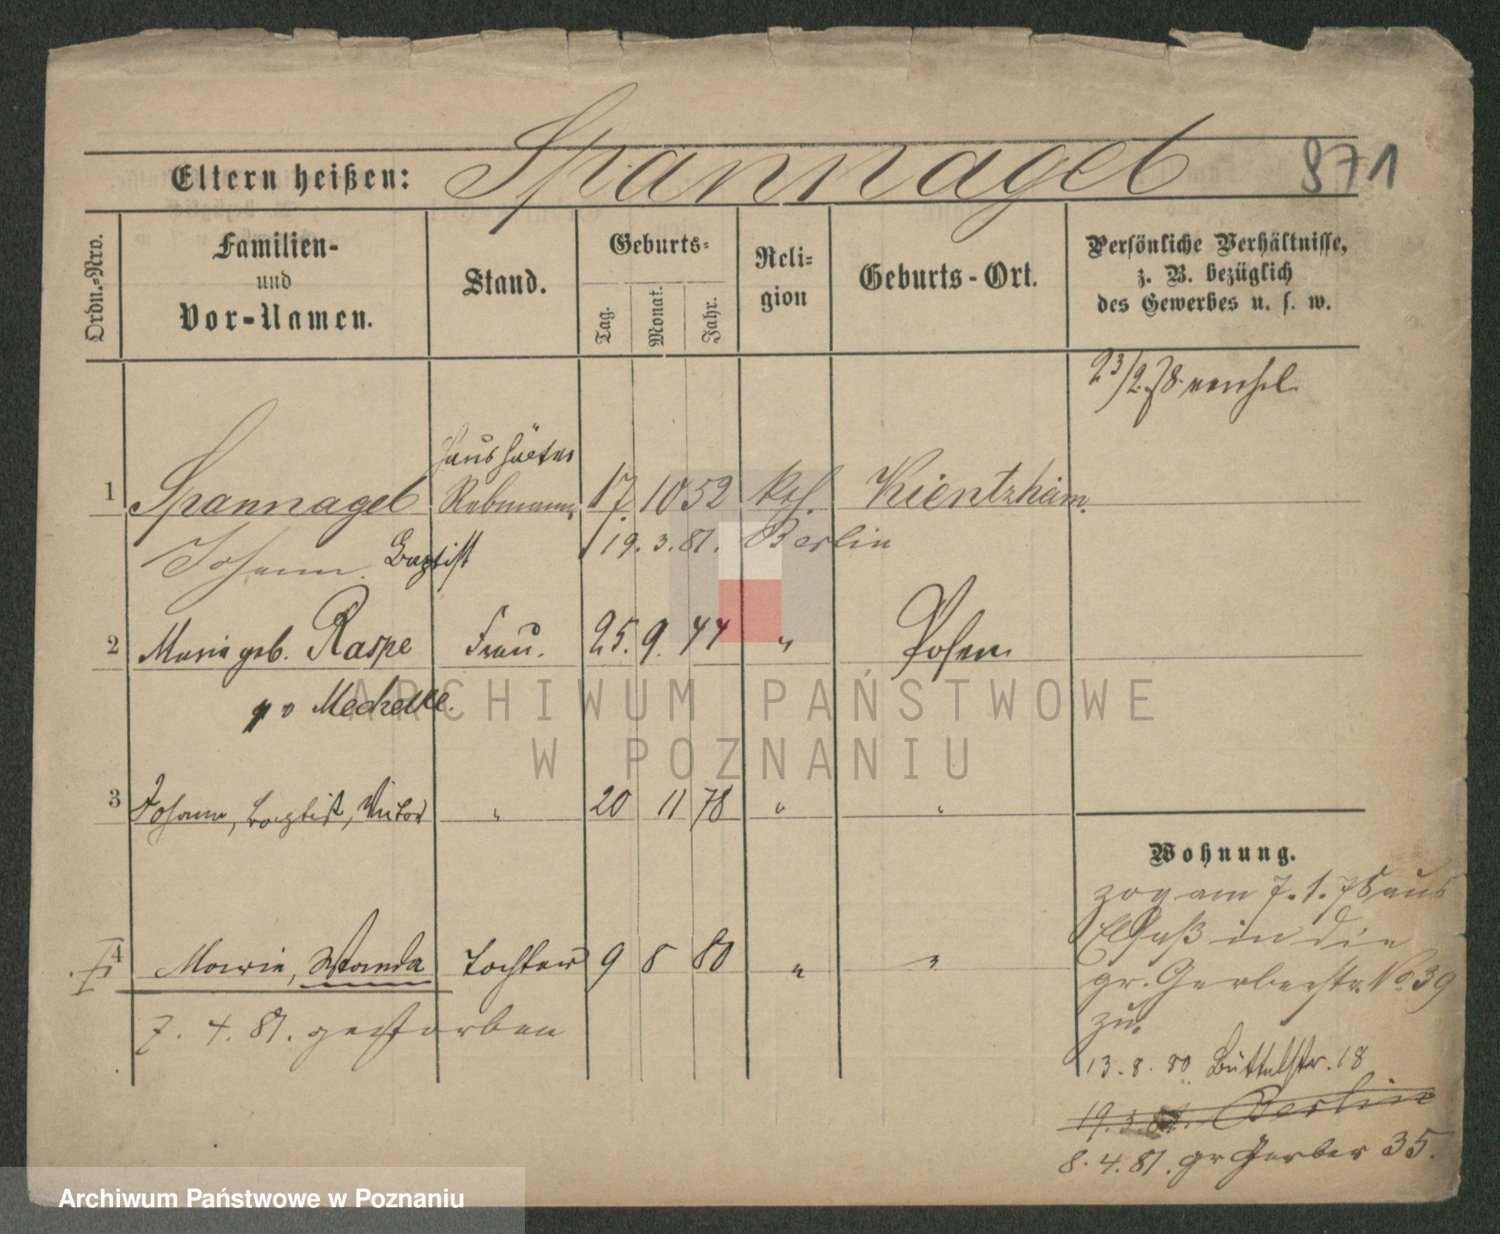 871
Eltern heißen: Spannagel
Ordn.-Nro.
Familien-
und
Vor-Namen.
Stand.
Geburts-
Tag.
Monat.
Jahr.
Reli-
gion
Geburts-Ort.
Persönliche Verhältnisse,
z. B. bezüglich
des Gewerbes u. s. w.
23/2.78.
Haushälter
1 Spannagel Rebmann 17. 10 52 kath. Kientzheim.
Johann Baptist 19. 3. 81. Berlin
2 Marie geb. Raspe Frau. 25. 9. 44 " Posen
Mechelke.
3 Johann, Baptist, Victor " 20 11 78 " "
4 Marie, Wanda Tochter 9 8 80 " "
7. 4. 81. gestorben
Wohnung.
zog am 7. 1. 78 aus
Elsaß in die
gr. Gerberstr. No 39
zu.
13. 8. 80 Büttelstr. 18
19. 3. 81. Berlin
8. 4. 81. gr Gerber 35.
ARCHIWUM PAŃSTWOWE
W POZNANIU
Archiwum Państwowe w Poznaniu